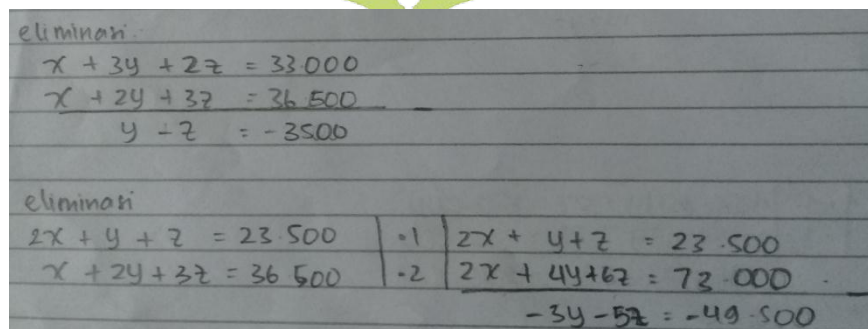 eliminasi
x + 3y + 2z = 33.000
x + 2y + 3z = 36.500 -
y - z = -3500
eliminasi
2x + y + z = 23.500 | ·1 | 2x + y + z = 23.500
x + 2y + 3z = 36.500 | ·2 | 2x + 4y + 6z = 73.000 -
-3y - 5z = -49.500